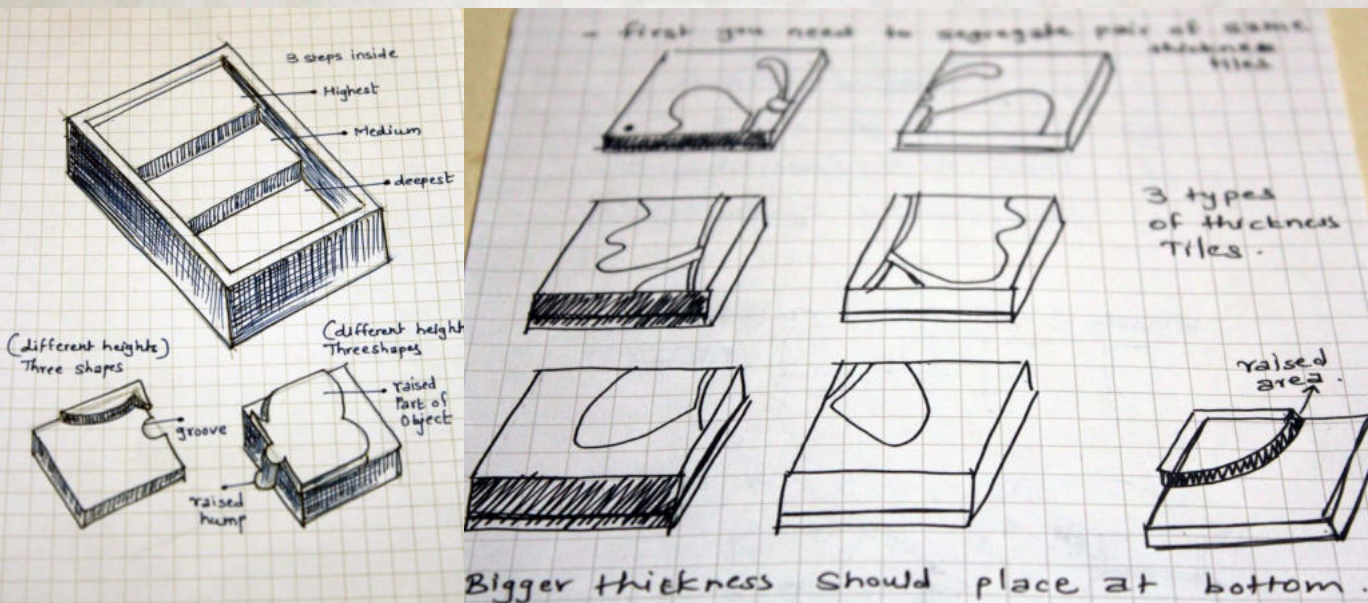 3 steps inside
Highest
Medium
deepest
(different heights)
Three shapes
groove
raised
hump
(different height
Threeshapes
raised
Part of
Object
- first you need to segregate pair of same
thickness
tiles
3 types
of thickness
Tiles.
raised
area.
Bigger thickness should place at bottom